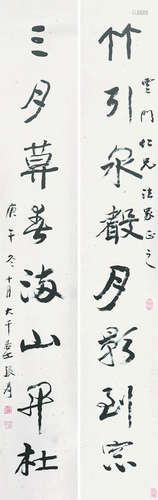 竹引泉聲月影到窗
雲門仁兄法家正之
三月暮春滿山開杜
庚午冬十月大千居士張爰